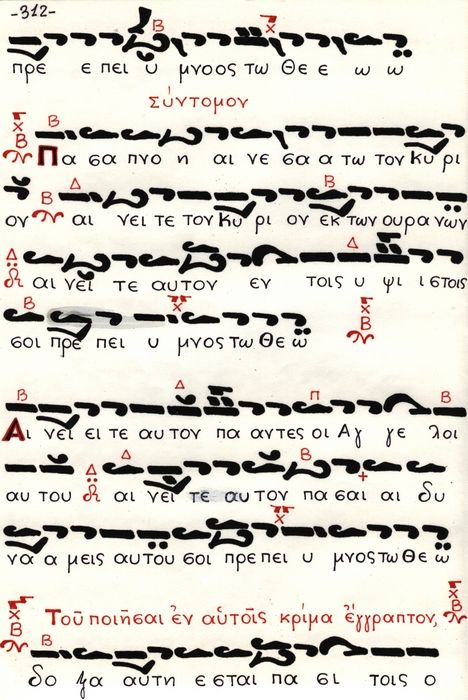 -312-
πρε ε πει υ μνοος τω Θε ε ω ω
Σύντομον
Πα σα πνο η αι νε σα α τω τον Κυ ρι
ον αι νει τε τον Κυ ρι ον εκ των ου ρα νων
αι νει τε αυ τον εν τοις υ ψι ι στοις
σοι πρε πει υ μνος τω Θε ω
Αι νει ει τε αυ τον πα αντες οι Αγ γε λοι
αυ του αι νει τε αυ τον πα σαι αι δυ
να α μεις αυ του σοι πρε πει υ μνος τω Θε ω
Τοῦ ποιῆσαι ἐν αὐτοῖς κρίμα ἔγγραπτον,
δο ξα αυτη ε σται πα σι τοις ο